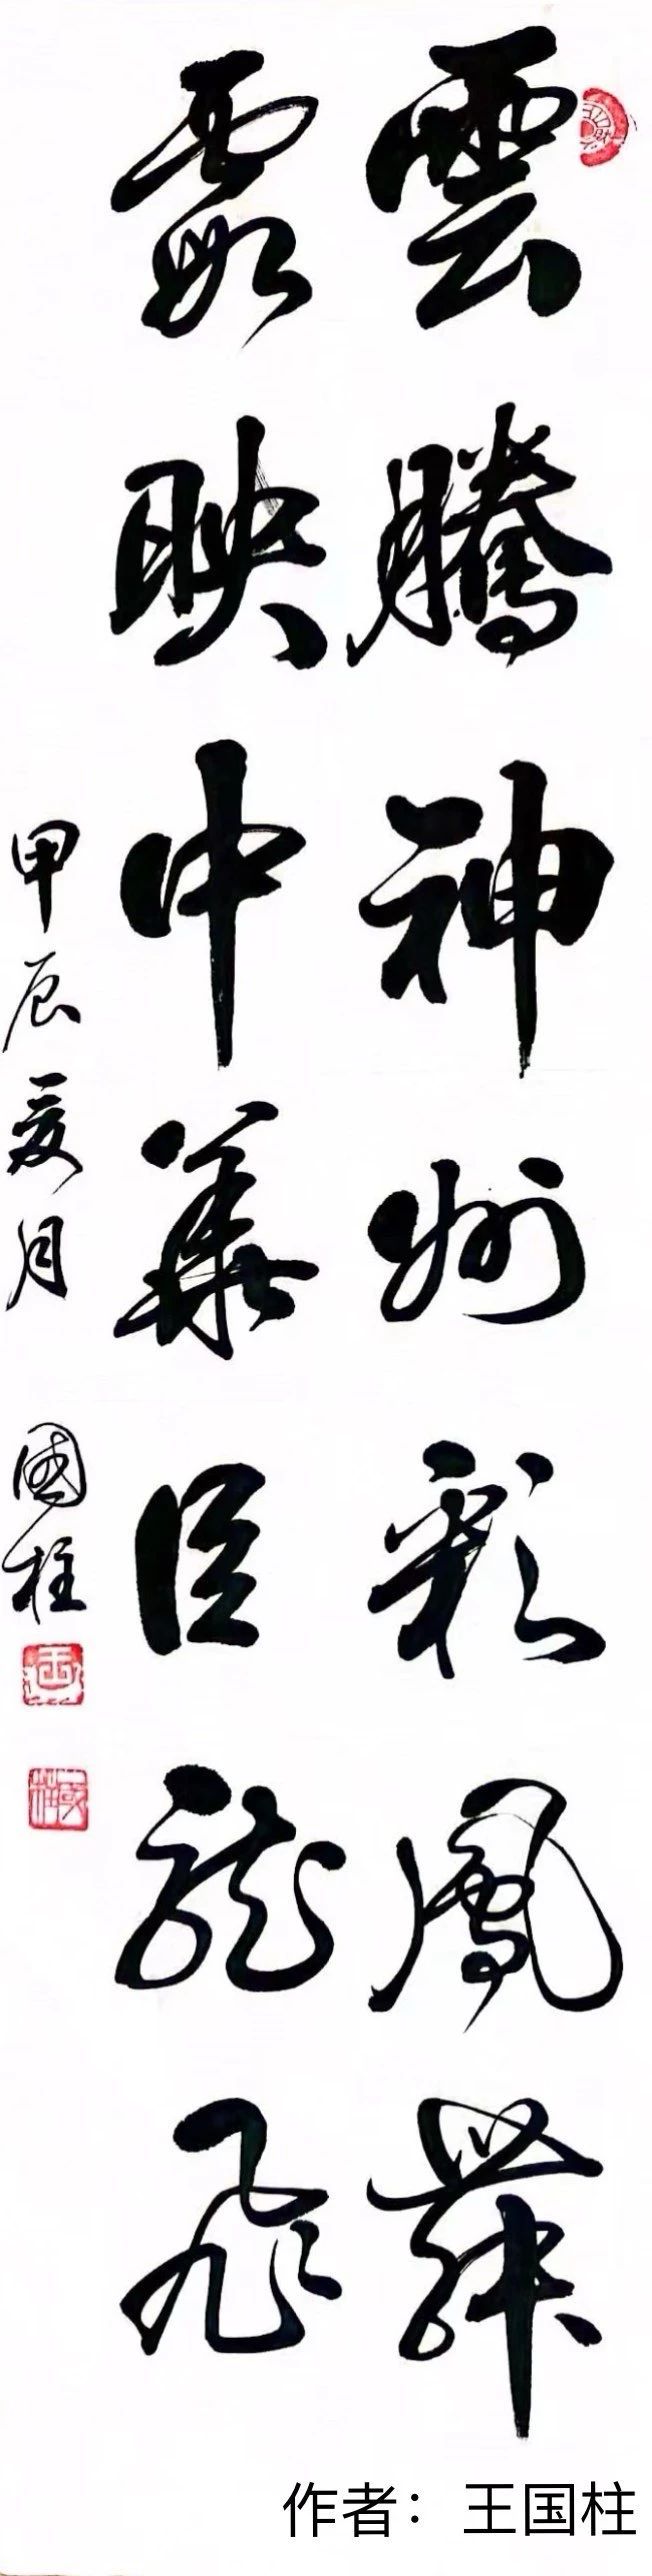 雲騰神州彩鳳舞
霞映中華巨龍飛
甲辰夏月 國柱
國柱
作者：王国柱